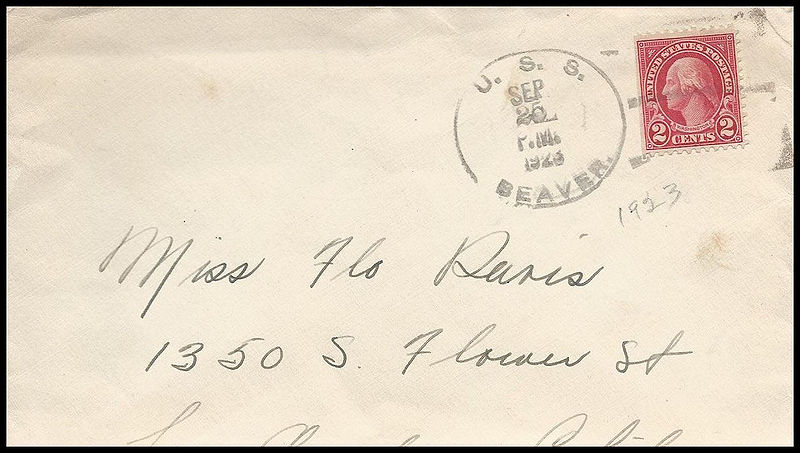 U. S. S.
SEP
25
P.M.
1923
BEAVER.
UNITED STATES POSTAGE
WASHINGTON
2 CENTS 2
1923
Miss Flo Davis
1350 S. Flower St